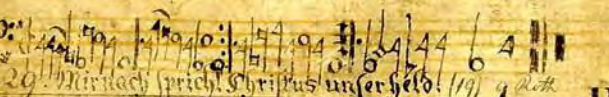 29. Mir nach spricht Christus unser held. (19) g Roth